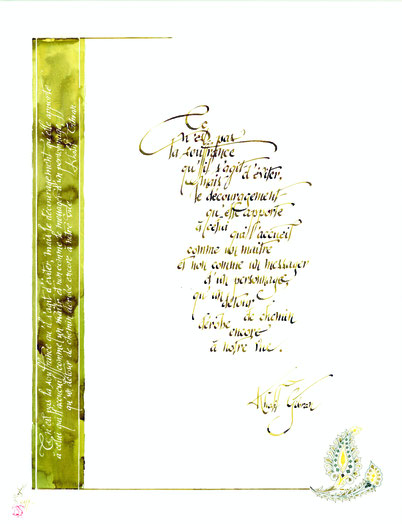 Ce
n'est pas
la souffrance
qu'il s'agit d'éviter,
mais
le découragement
qu'elle apporte
à celui
qui l'accueil
comme un maître
et non comme un messager
d'un personnage,
qu'un
détour
de chemin
dérobe
encore
à notre vue.
Ce n'est pas la souffrance qu'il s'agit d'éviter, mais le découragement qu'elle apporte
à celui qui l'accueil comme un maître et non comme un messager d'un personnage,
qu'un détour de chemin dérobe encore à notre vue.